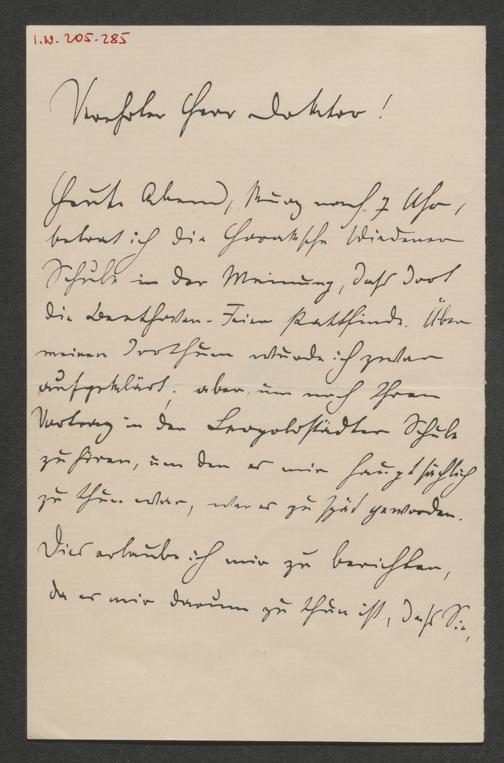 I.N. 205.285
Verehrter Herr Doktor!
Heute Abend, kurz nach 7 Uhr,
betrat ich die Horaksche Wiedener
Schule in der Meinung, daß dort
die Beethoven-Feier stattfinde. Über
meinen Irrthum wurde ich zwar
aufgeklärt; aber, um noch Ihren
Vortrag in der Leopoldstädter Schule
zu hören, um den es mir hauptsächlich
zu thun war, war es zu spät geworden.
Dies erlaube ich mir zu berichten,
da es mir darum zu thun ist, daß Sie,